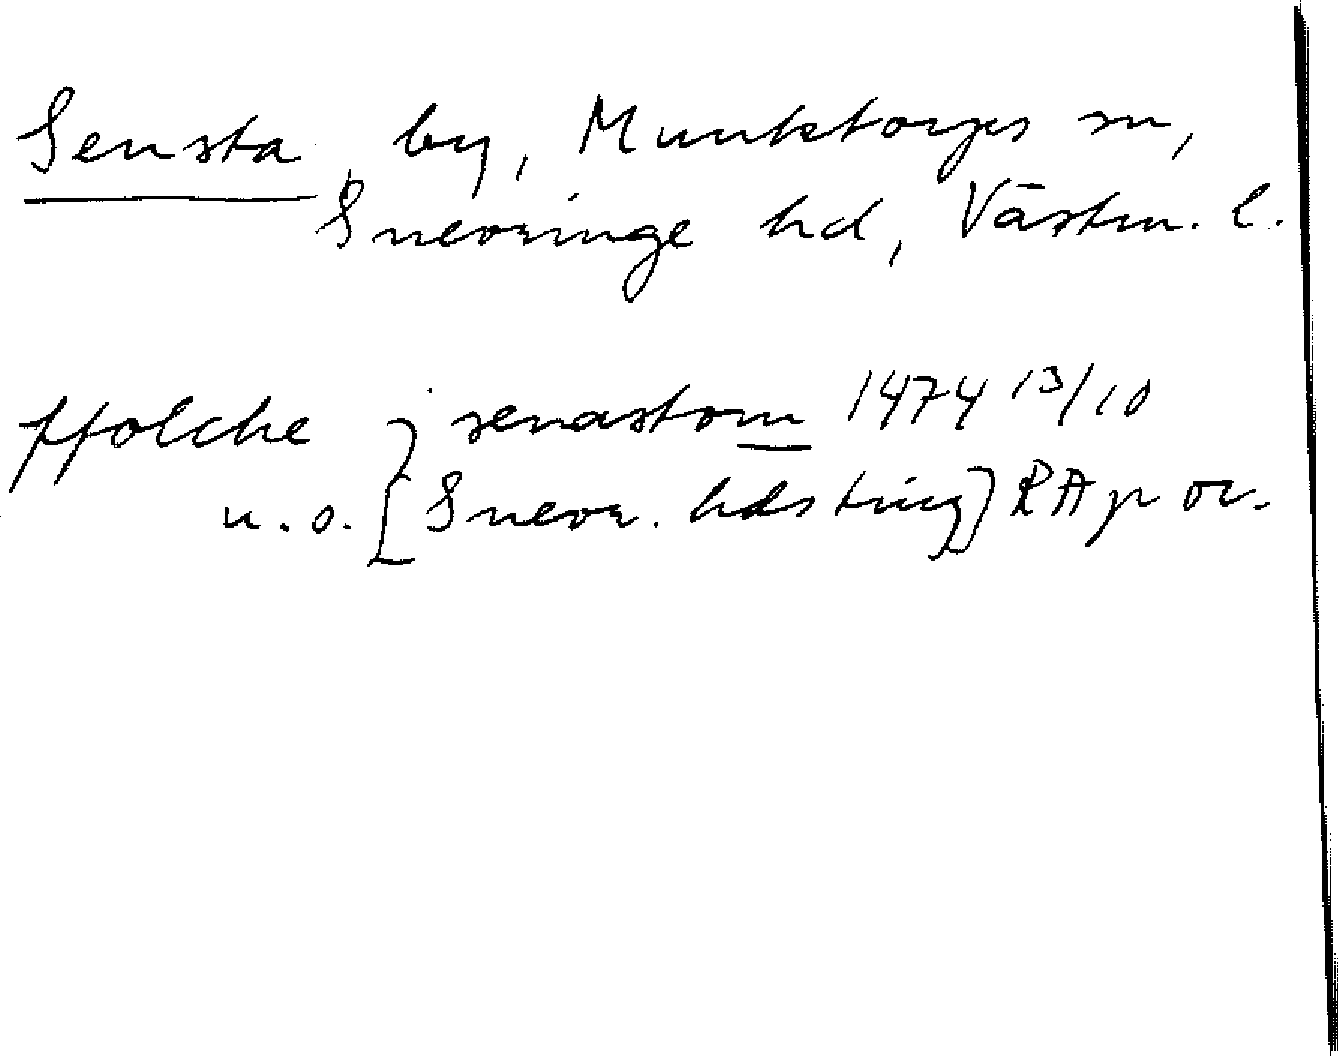 Sensta, by, Munktorps sn,
Snevringe hd, Västm. l.
ffolche j senastom 1474 13/10
u.o. [Snevr. hds ting] RAp or.